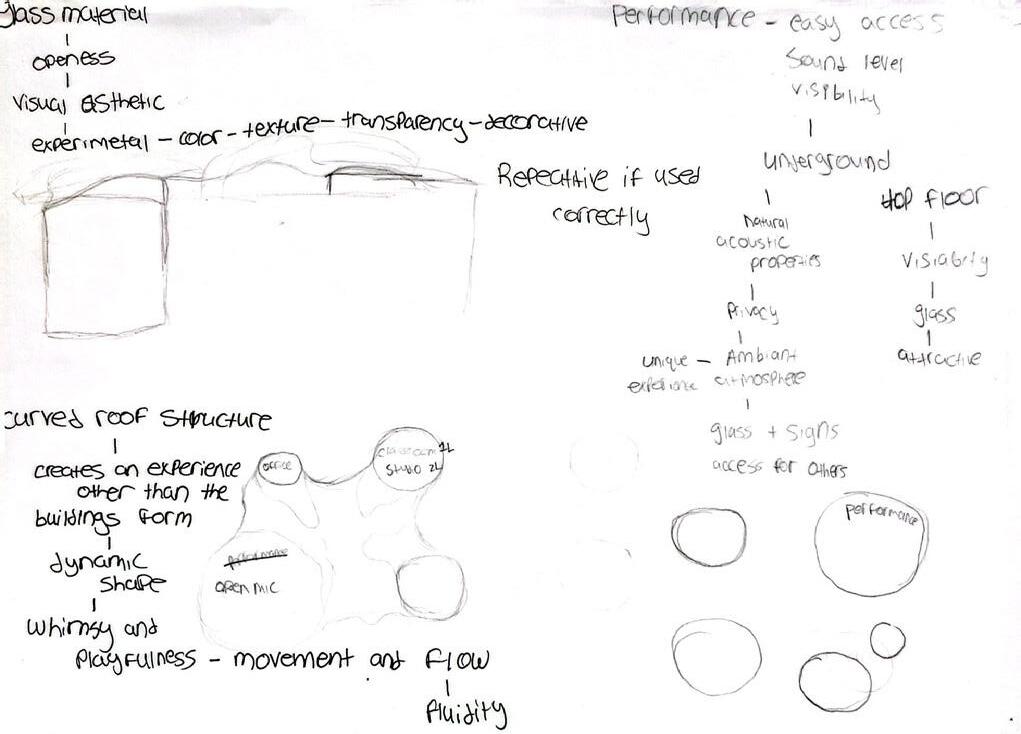 glass material
openess
visual asthetic
experimetal - color - texture - transparency - decorative
Repeative if used
correctly
Performance - easy access
Sound level
visibility
underground
Natural
acoustic
properties
Privacy
unique - Ambiant
experience atmosphere
glass + signs
access for others
top floor
visiabity
glass
attractive
curved roof structure
creates an experience
other than the
buildings form
dynamic
shape
whimsy and
Playfulness - movement and flow
fluidity
office
classroom 1L
studio 2L
performance
open mic
performance